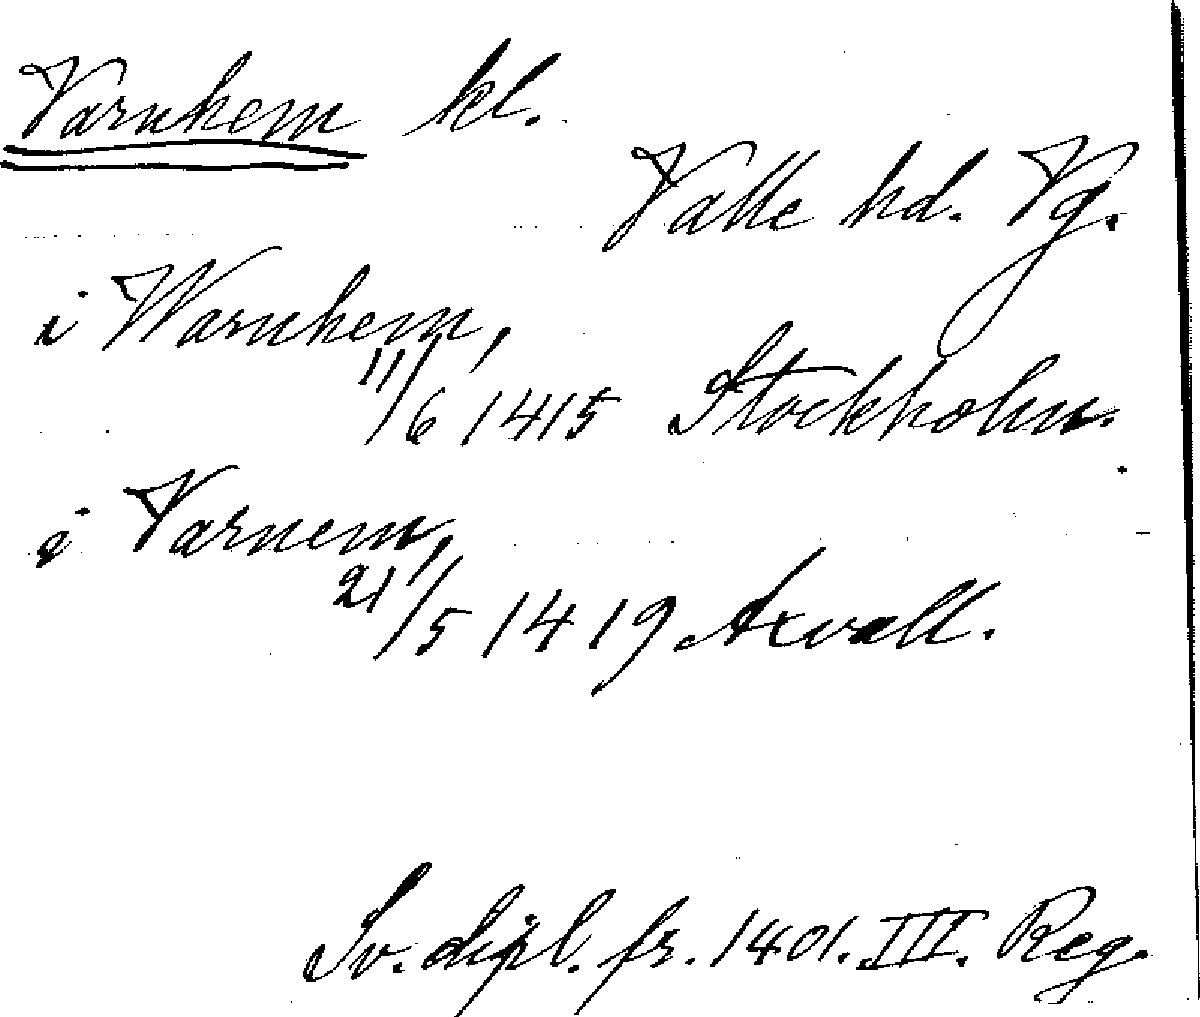 Varnhem kl.
Valle hd. Vg.
i Warnhem,
11/6 1415 Stockholm.
i Varnem,
21/5 1419 Axvall.
Sv. dipl. fr. 1401. III. Reg.